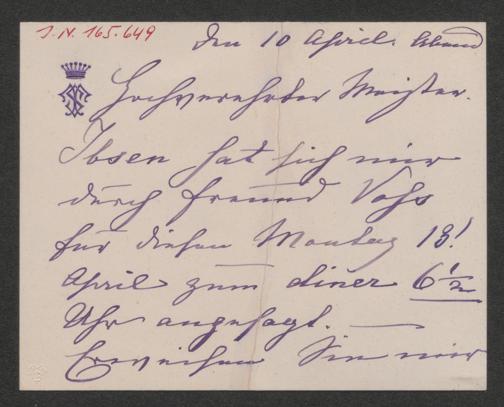 I.N. 165.649
Den 10 April. Abend
Hochverehrter Meister.
Ibsen hat sich mir
durch Freund Vohs
für diesen Montag 13!
April zum diner 6 1/2
Uhr angesagt. —
Erweisen Sie mir